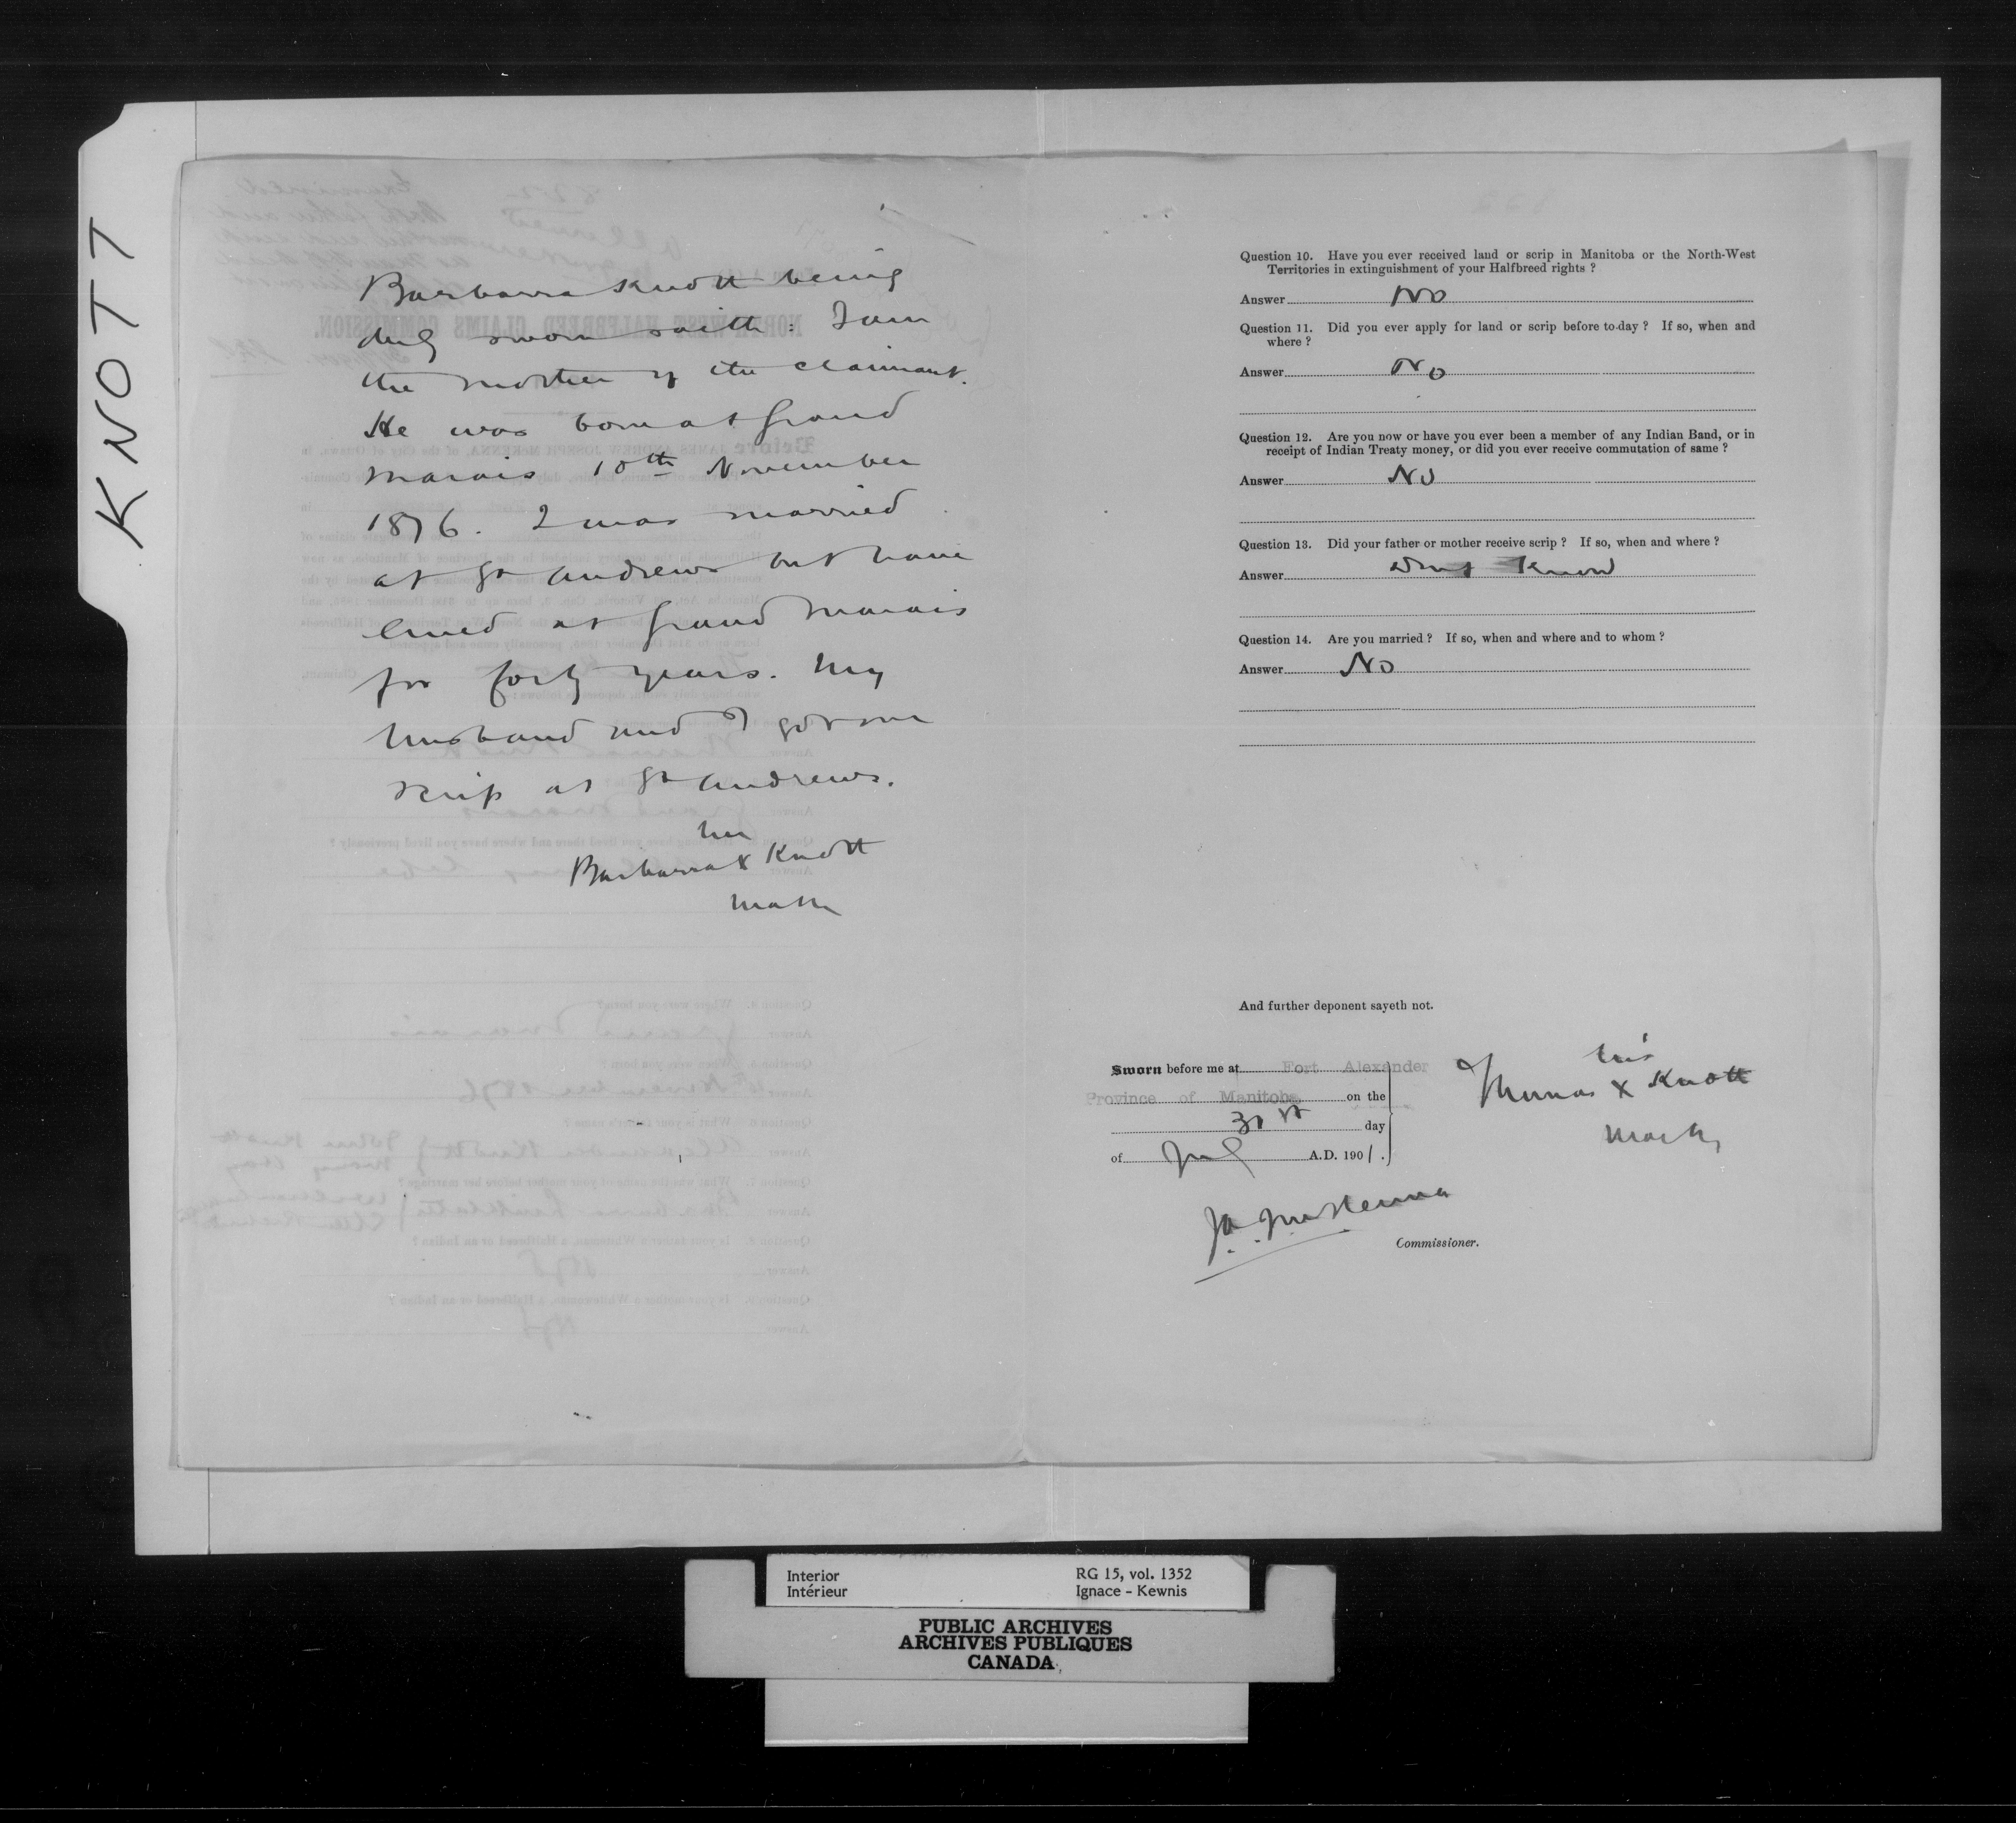 KNOTT
Barbara Knott being
duly sworn saith: I am
the mother of the claimant.
He was born at Grand
Marais 10th November
1876. I was married
at St Andrews but have
lived at Grand Marais
for forty years. My
husband and I got our
scrip at St Andrews.
her
Barbara X Knott
mark
Question 10. Have you ever received land or scrip in Manitoba or the North-West
Territories in extinguishment of your Halfbreed rights ?
Answer No
Question 11. Did you ever apply for land or scrip before to-day ? If so, when and
where ?
Answer No
Question 12. Are you now or have you ever been a member of any Indian Band, or in
receipt of Indian Treaty money, or did you ever receive commutation of same ?
Answer No
Question 13. Did your father or mother receive scrip ? If so, when and where ?
Answer Dont Know
Question 14. Are you married ? If so, when and where and to whom ?
Answer No
And further deponent sayeth not.
Sworn before me at Fort Alexander
Province of Manitoba on the
31st day
of July A.D. 1901.
his
Thomas X Knott
mark
J A McKenna
Commissioner.
Interior
Intérieur
RG 15, vol. 1352
Ignace - Kewnis
PUBLIC ARCHIVES
ARCHIVES PUBLIQUES
CANADA